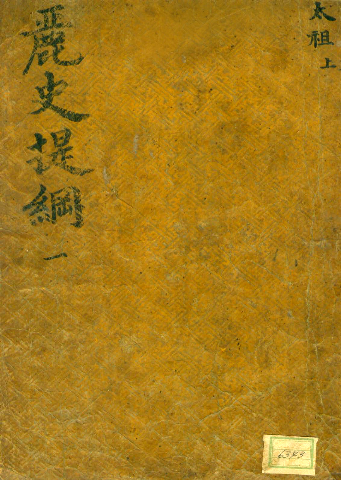 太祖上
麗史提綱 一
6343